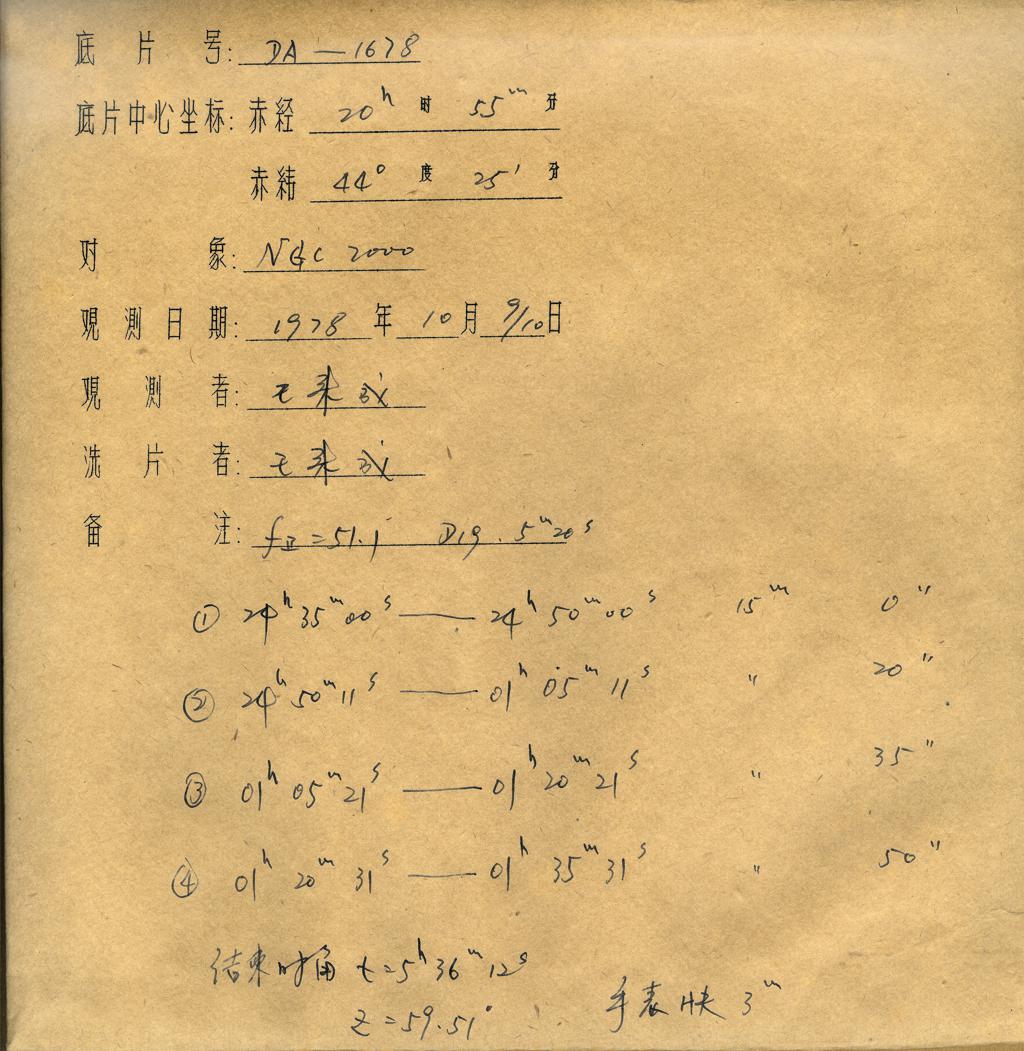 底片号: DA—1678
底片中心坐标: 赤经 20h 时 55m 分
赤緯 44° 度 25′ 分
对象: NGC 2000
观测日期: 1978 年 10 月 9/10 日
观测者: 王来成
洗片者: 王来成
备注: =51.1 5m20s
① 24h 35m 00s — 24h 50m 00s 15m 0"
② 24h 50m 11s — 01h 05m 11s " 20"
③ 01h 05m 21s — 01h 20m 21s " 35"
④ 01h 20m 31s — 01h 35m 31s " 50"
结束时角 t=5h 36m 12s
手表快 3m
z=59.51°